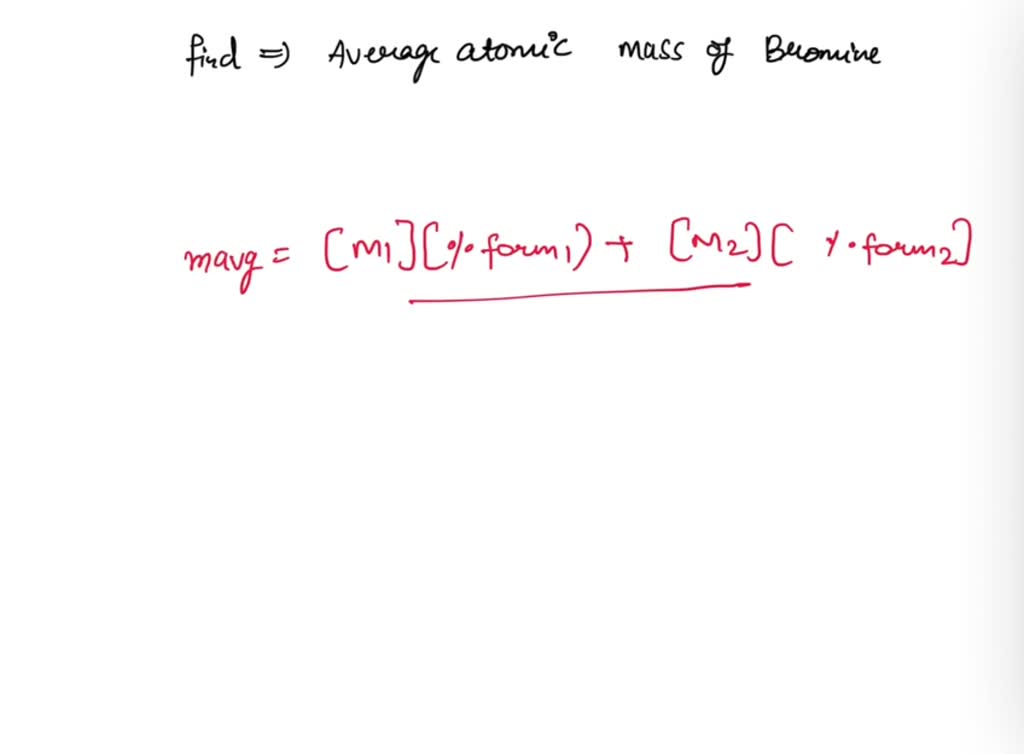 find => Average atomic mass of Bromine
mavg = [m1][% form1) + [M2][ %form2]